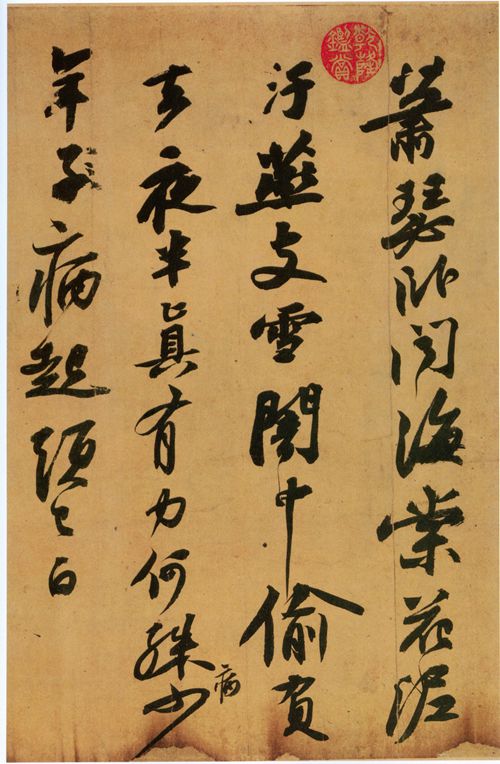 乾隆鑑賞
蕭瑟臥聞海棠花泥
汙燕支雪闇中偷負
去夜半真有力何殊少
病
年子病起頭已白